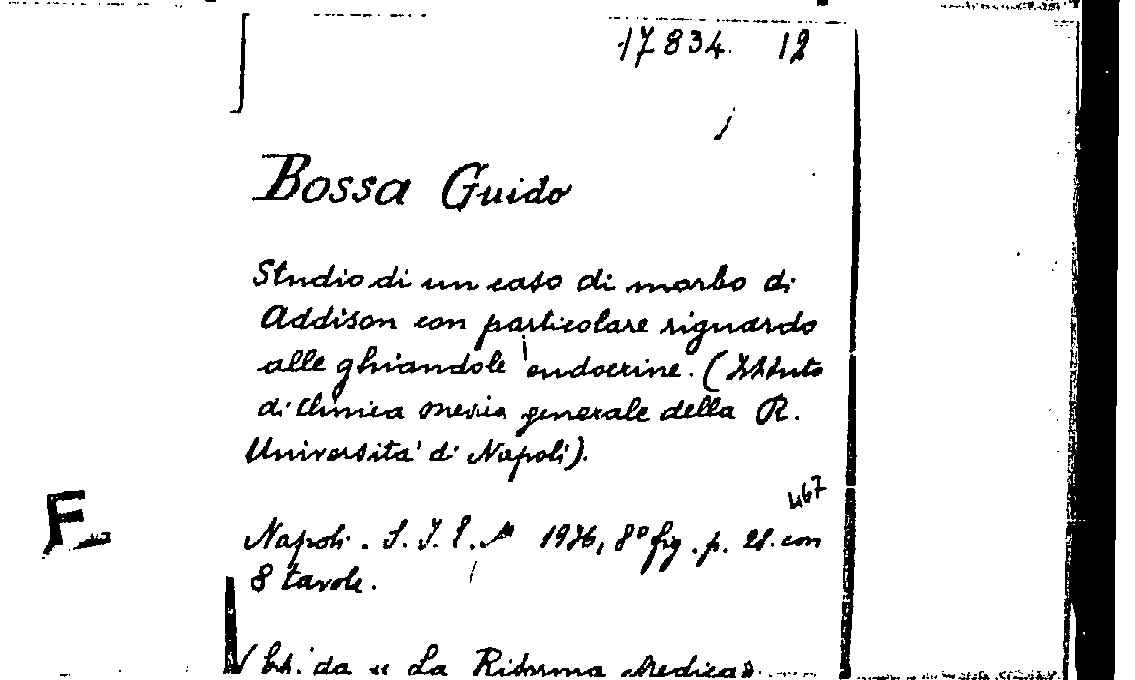 17834. 12
Bossa Guido
Studio di un caso di morbo di
Addison con particolare riguardo
alle ghiandole endocrine. (Istituto
di Clinica Medica generale della R.
Università di Napoli).
467
F
Napoli. S. I. E. M 1936, 8° fig. p. 21. con
8 tavole.
Est. da « La Riforma Medica»